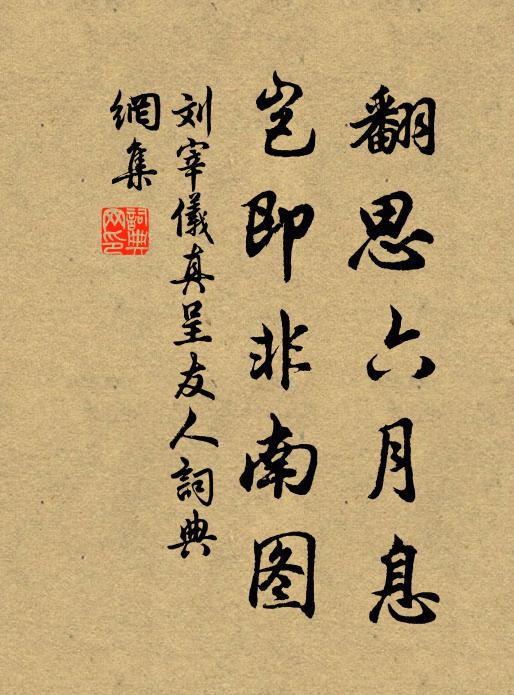 翻思六月息
岂即非南图
刘宰仪真呈友人詞典
網集
詞典网印